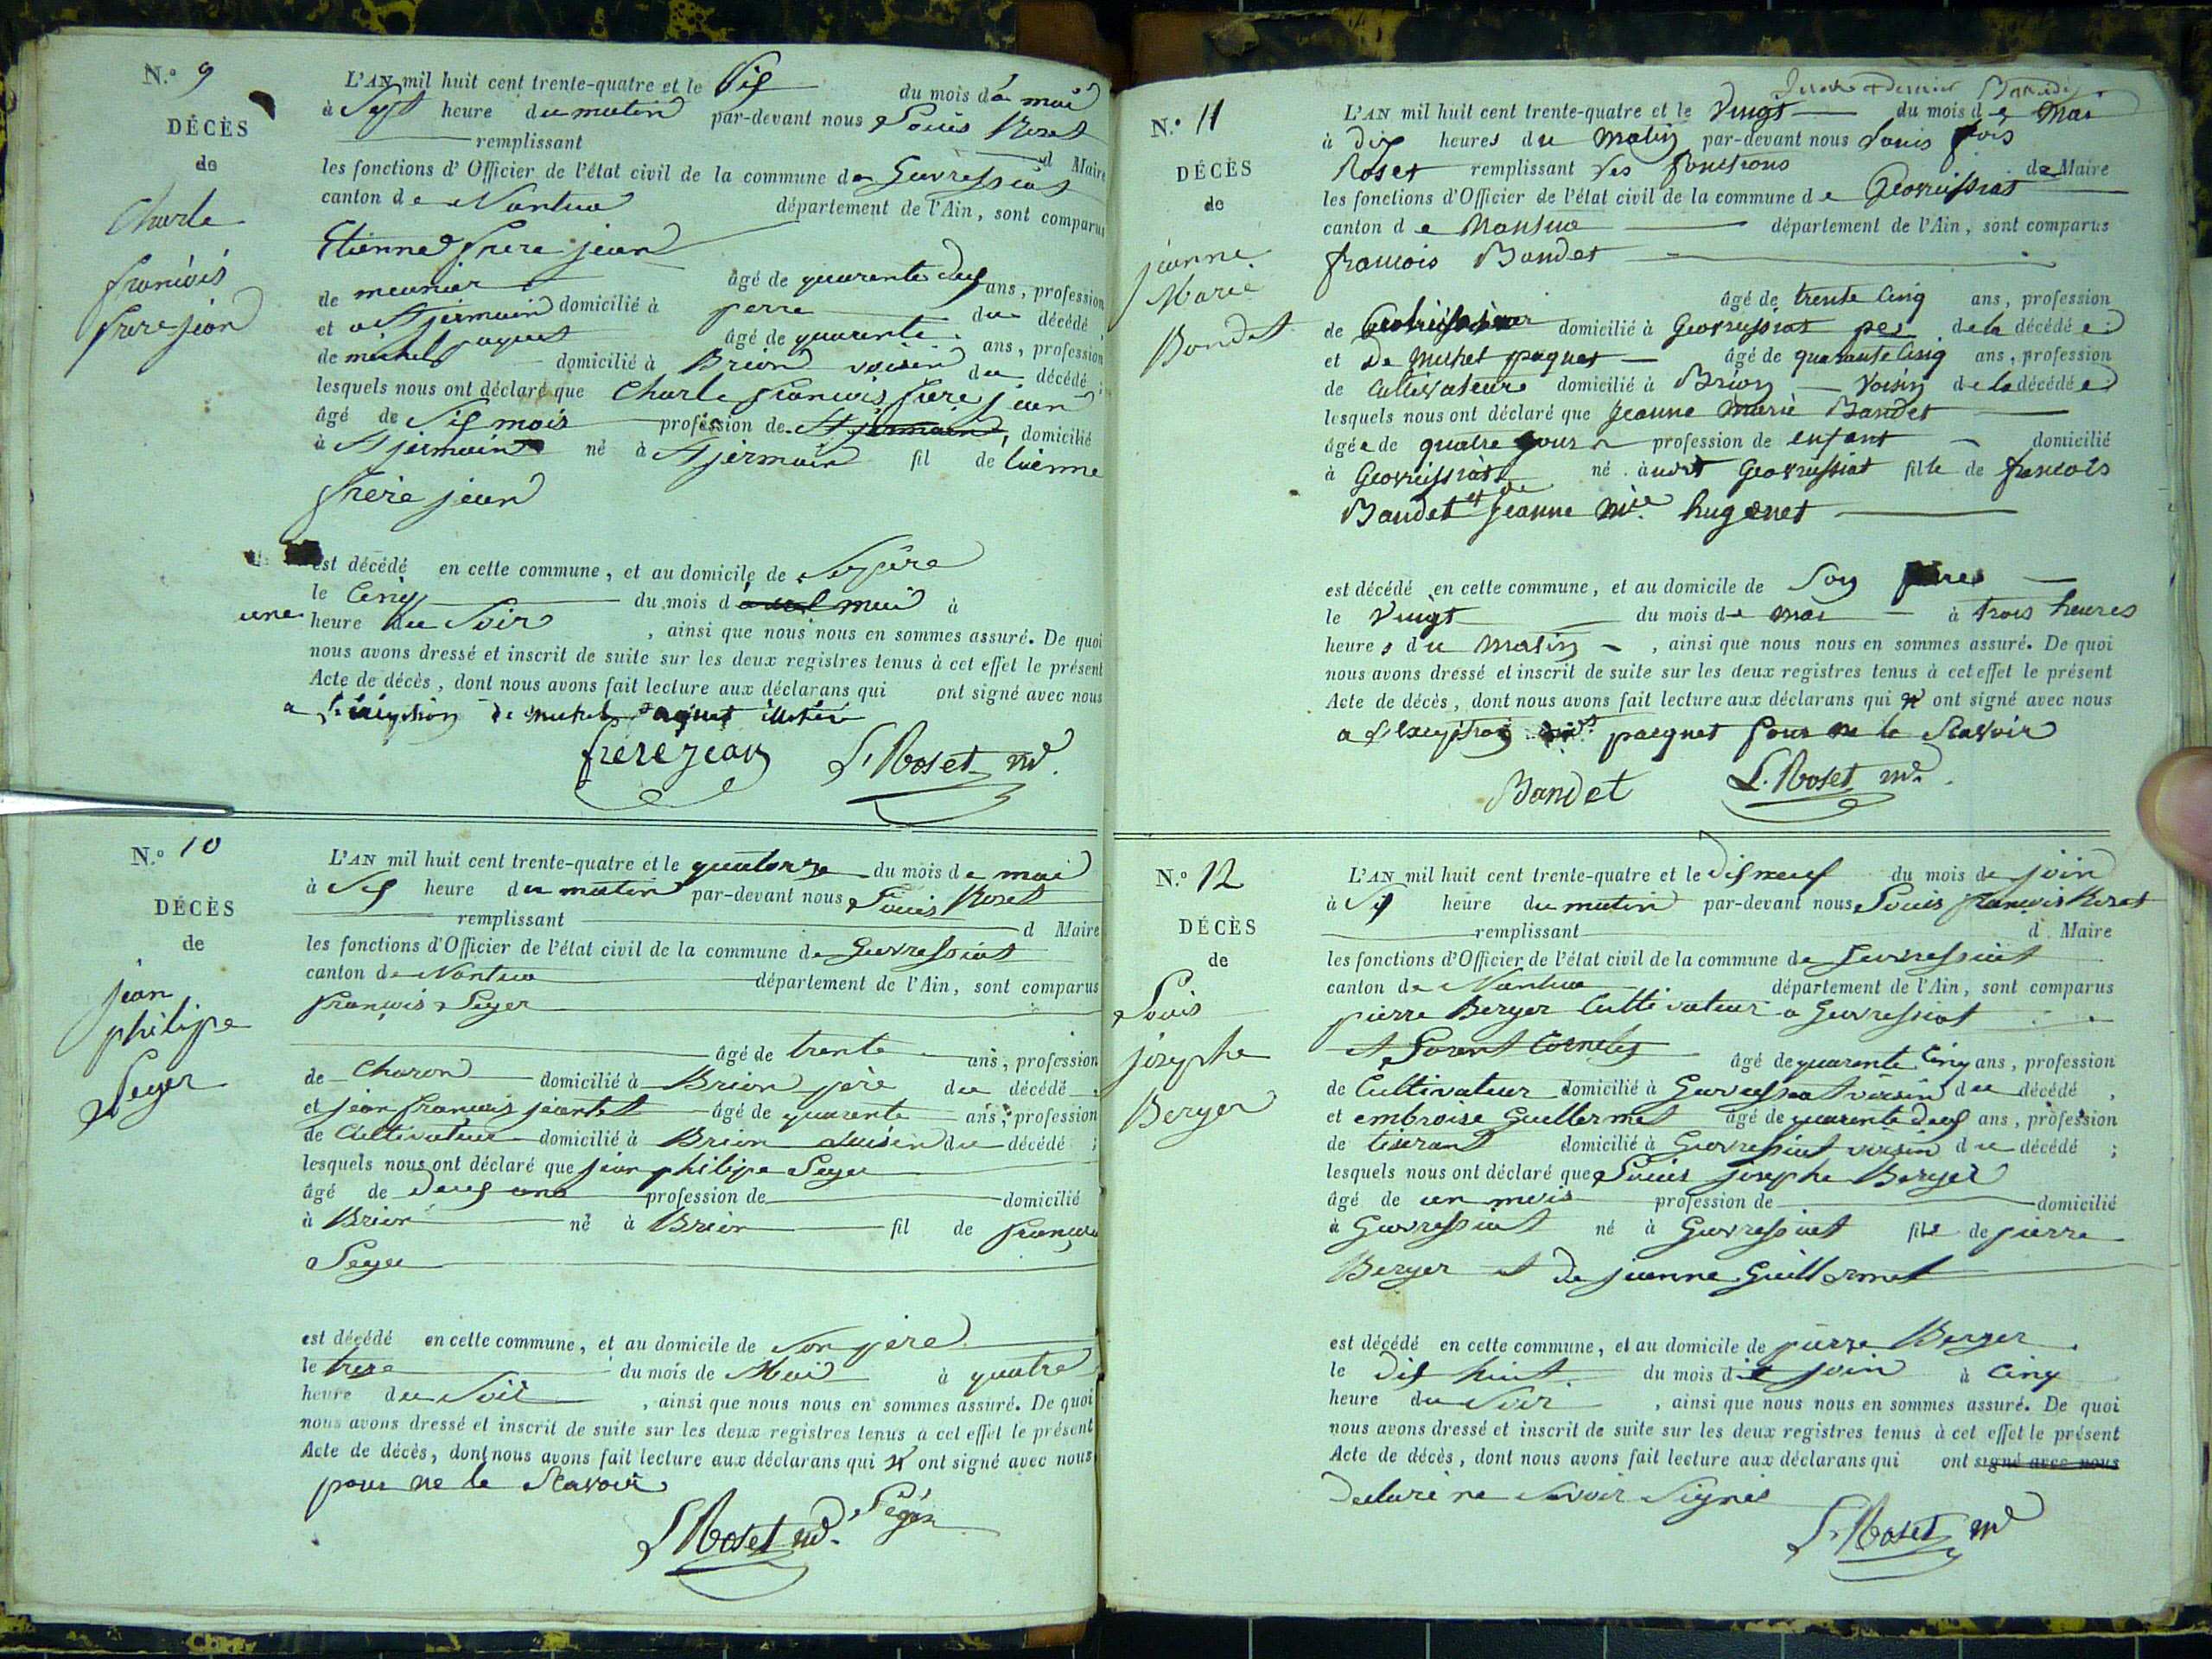 N.º 9
DÉCÈS
de
Charle
françois
frere jean
L'AN mil huit cent trente-quatre et le Six du mois de mai
à Sept heure du matin par-devant nous Louis Roset
remplissant d Maire
les fonctions d'Officier de l'état civil de la commune de Gevressiat
canton de Nantua département de l'Ain, sont comparus
Etienne frere jean
âgé de quarente deux ans, profession
de meunier domicilié à St jermain perre du décédé,
et michel paquet âgé de quarente ans, profession
de domicilié à Brion voisin du décédé;
lesquels nous ont déclaré que Charle francois frere jean
âgé de Six mois profession de St jermain, domicilié
à St jermain né à St jermain fil de Etienne
frere jean
est décédé en cette commune, et au domicile de Son père
le Cinq du mois d avril mai à
une heure du Soir, ainsi que nous nous en sommes assuré. De quoi
nous avons dressé et inscrit de suite sur les deux registres tenus à cet effet le présent
Acte de décès, dont nous avons fait lecture aux déclarans qui ont signé avec nous
a l'exception de michel paquet
frerejean L. Roset m.
N.º 10
DÉCÈS
de
jean
philipe
Seger
L'AN mil huit cent trente-quatre et le quatorze du mois de mai
à Six heure du matin par-devant nous Louis Roset
remplissant d Maire
les fonctions d'Officier de l'état civil de la commune de Gevressiat
canton de Nantua département de l'Ain, sont comparus
françois Seger
âgé de trente ans, profession
de Charon domicilié à Brion père du décédé
et jean françois jeantet âgé de quarente ans, profession
de Cultivateur domicilié à Brion voisin du décédé;
lesquels nous ont déclaré que jean philipe Seger
âgé de deux ans profession de domicilié
à Brion né à Brion fil de françois
Seger
est décédé en cette commune, et au domicile de Son père
le treze du mois de Mai à quatre
heure du Soir, ainsi que nous nous en sommes assuré. De quoi
nous avons dressé et inscrit de suite sur les deux registres tenus à cet effet le présent
Acte de décès, dont nous avons fait lecture aux déclarans qui n' ont signé avec nous
pour ne le Scavoir
L Roset m.
N.º 11
DÉCÈS
de
jeanne
Marie
Bandet
L'AN mil huit cent trente-quatre et le Vingt du mois de Mai
à dix heures du Matin par-devant nous Louis fois
Roset remplissant les fonctions de Maire
les fonctions d'Officier de l'état civil de la commune de Geovreissiat
canton de Nantua département de l'Ain, sont comparus
francois Bandet
âgé de trente Cinq ans, profession
de domicilié à Geovreissiat per de la décédée
et De Michel paquet âgé de quarante Cinq ans, profession
de Cultivateur domicilié à Brion Voisin de la décédée
lesquels nous ont déclaré que Jeanne Marie Bandet
âgée de quatre jours profession de enfant domicilié
à Geovreissiat né audit Geovreissiat fille de francois
Bandet et de Jeanne Mie hugonet
est décédé en cette commune, et au domicile de Son père
le Vingt du mois de mai à trois heures
heures du Matin, ainsi que nous nous en sommes assuré. De quoi
nous avons dressé et inscrit de suite sur les deux registres tenus à cet effet le présent
Acte de décès, dont nous avons fait lecture aux déclarans qui n' ont signé avec nous
a l'exception paquet pour ne le Scavoir
Bandet L. Roset m.
N.º 12
DÉCÈS
de
Louis
josephe
Berger
L'AN mil huit cent trente-quatre et le dix neuf du mois de join
à Six heure du matin par-devant nous Louis françois Roset
remplissant d Maire
les fonctions d'Officier de l'état civil de la commune de Gevressiat
canton de Nantua département de l'Ain, sont comparus
pierre Berger Cultivateur a Gevressiat
et Lorent Corneley âgé de quarente Cinq ans, profession
de Cultivateur domicilié à Gevressiat voisin du décédé,
et embroise Guillermet âgé de quarente deux ans, profession
de tiserant domicilié à Gevressiat voisin du décédé;
lesquels nous ont déclaré que Louis josephe Berger
âgé de un mois profession de domicilié
à Gevressiat né à Gevressiat fils de pierre
Berger et de jeanne Guillermet
est décédé en cette commune, et au domicile de pierre Berger
le dix huit du mois de join à Cinq
heure du Soir, ainsi que nous nous en sommes assuré. De quoi
nous avons dressé et inscrit de suite sur les deux registres tenus à cet effet le présent
Acte de décès, dont nous avons fait lecture aux déclarans qui ont signé avec nous
Declaré ne Savoir Signer
L. Roset m